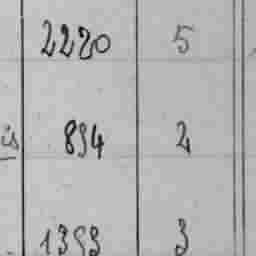 2220 5
is 894 2
1393 3